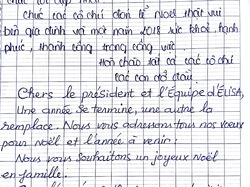 Chúc các cô chú đón lễ Noel thật vui
bên gia đình và một năm 2018 sức khoẻ, hạnh
phúc, thành công trong công việc.
Xin chào tất cả các cô chú
Các con ở đây
Chers le président et l'Équipe d'ELISA,
Une année se termine, une autre la
remplace. Nous vous adressons tous nos voeux
pour noël et l'année à venir:
Nous vous souhaitons un joyeux noël
en famille.